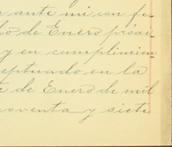 ante mi con fe
ho de Enero proxi
y en cumplimien
eptuado en la
te de Enero de mil
noventa y siete